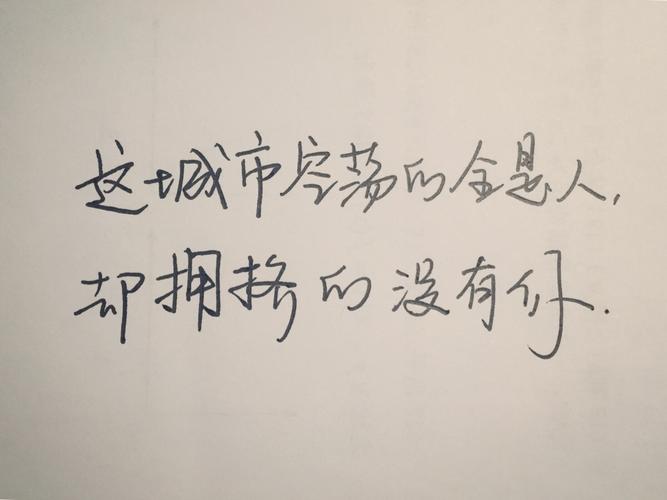 这城市空荡的全是人，
却拥挤的没有你.